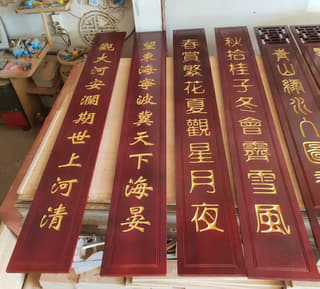 觀大河安瀾期世上河清
望東海寧波冀天下海晏
春賞繁花夏觀星月夜
秋拾桂子冬會霽雪風
青山綠水